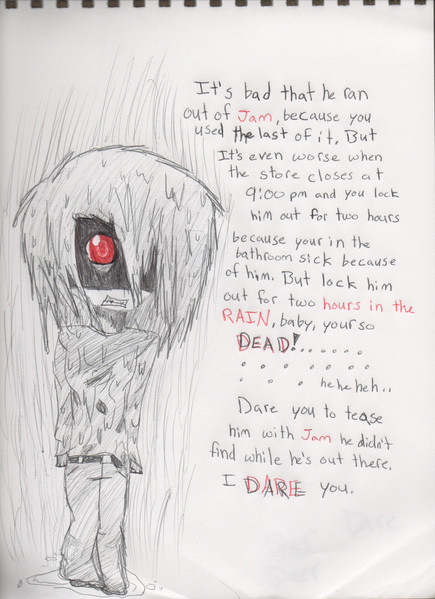 It's bad that he ran
out of Jam, because you
used the last of it. But
It's even worse when
the store closes at
9:00 pm and you lock
him out for two hours
because your in the
bathroom sick because
of him. But lock him
out for two hours in the
RAIN, baby, your so
DEAD!......
. . . . . .
. . . hehe heh..
Dare you to tease
him with Jam he didn't
find while he's out there.
I DARE you.